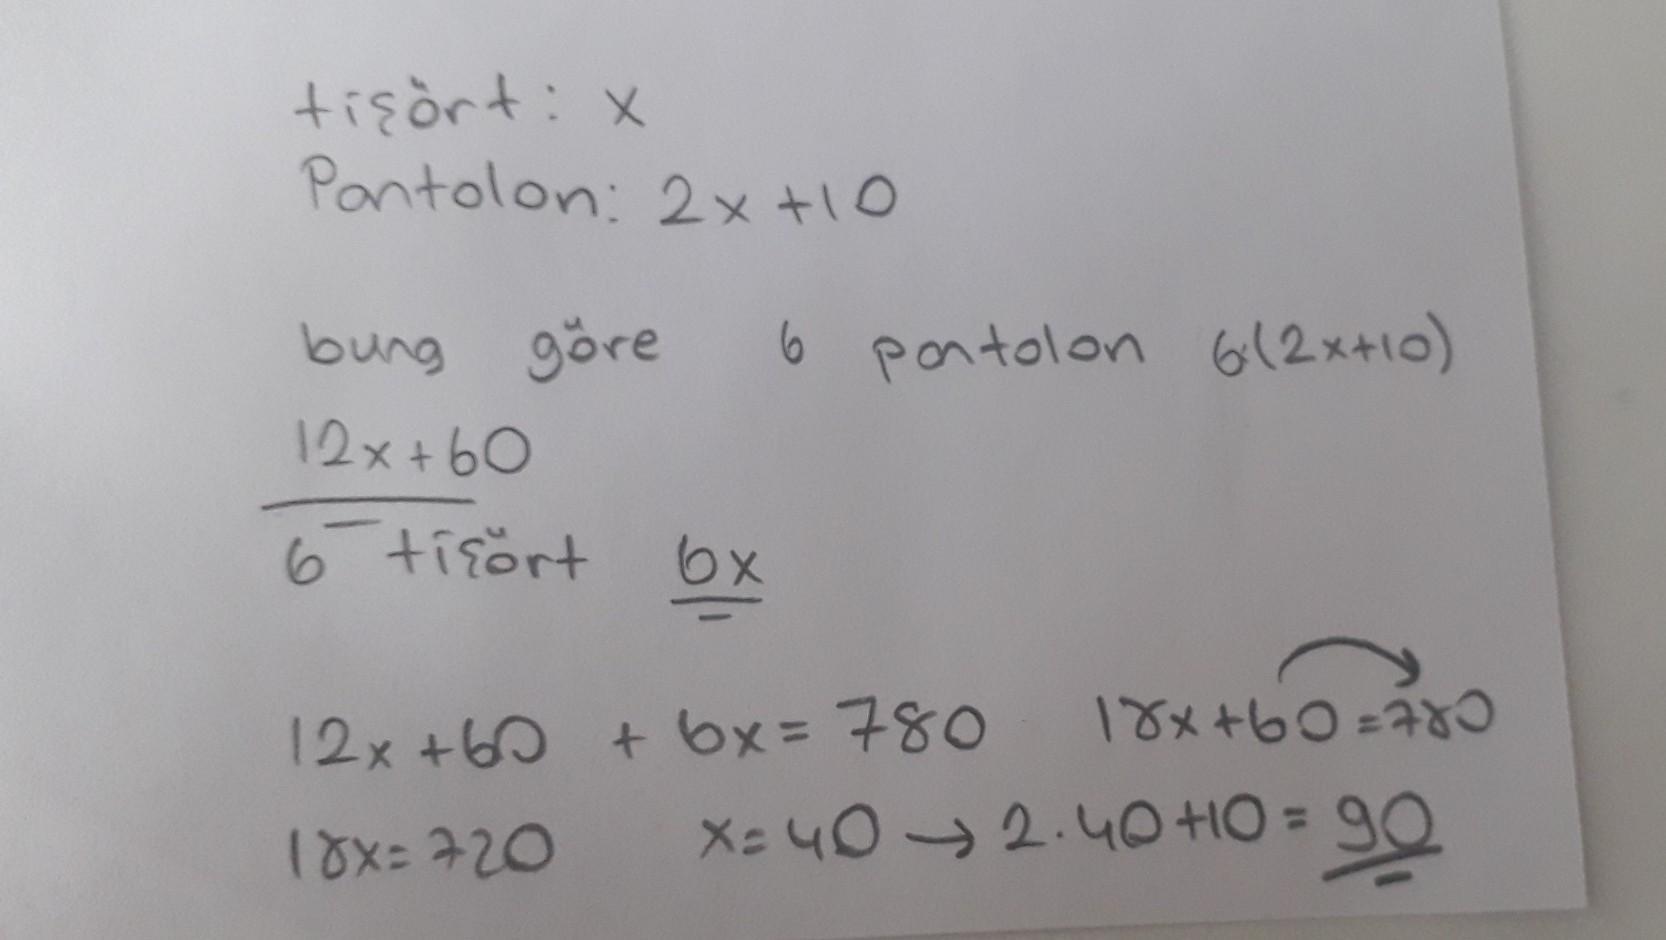 tişört: x
Pantolon: 2x+10
buna göre 6 pantolon 6.(2x+10)
12x+60
6 tişört 6x
12x+60 + 6x=780 18x+60=780
18x=720 x=40 → 2.40+10=90